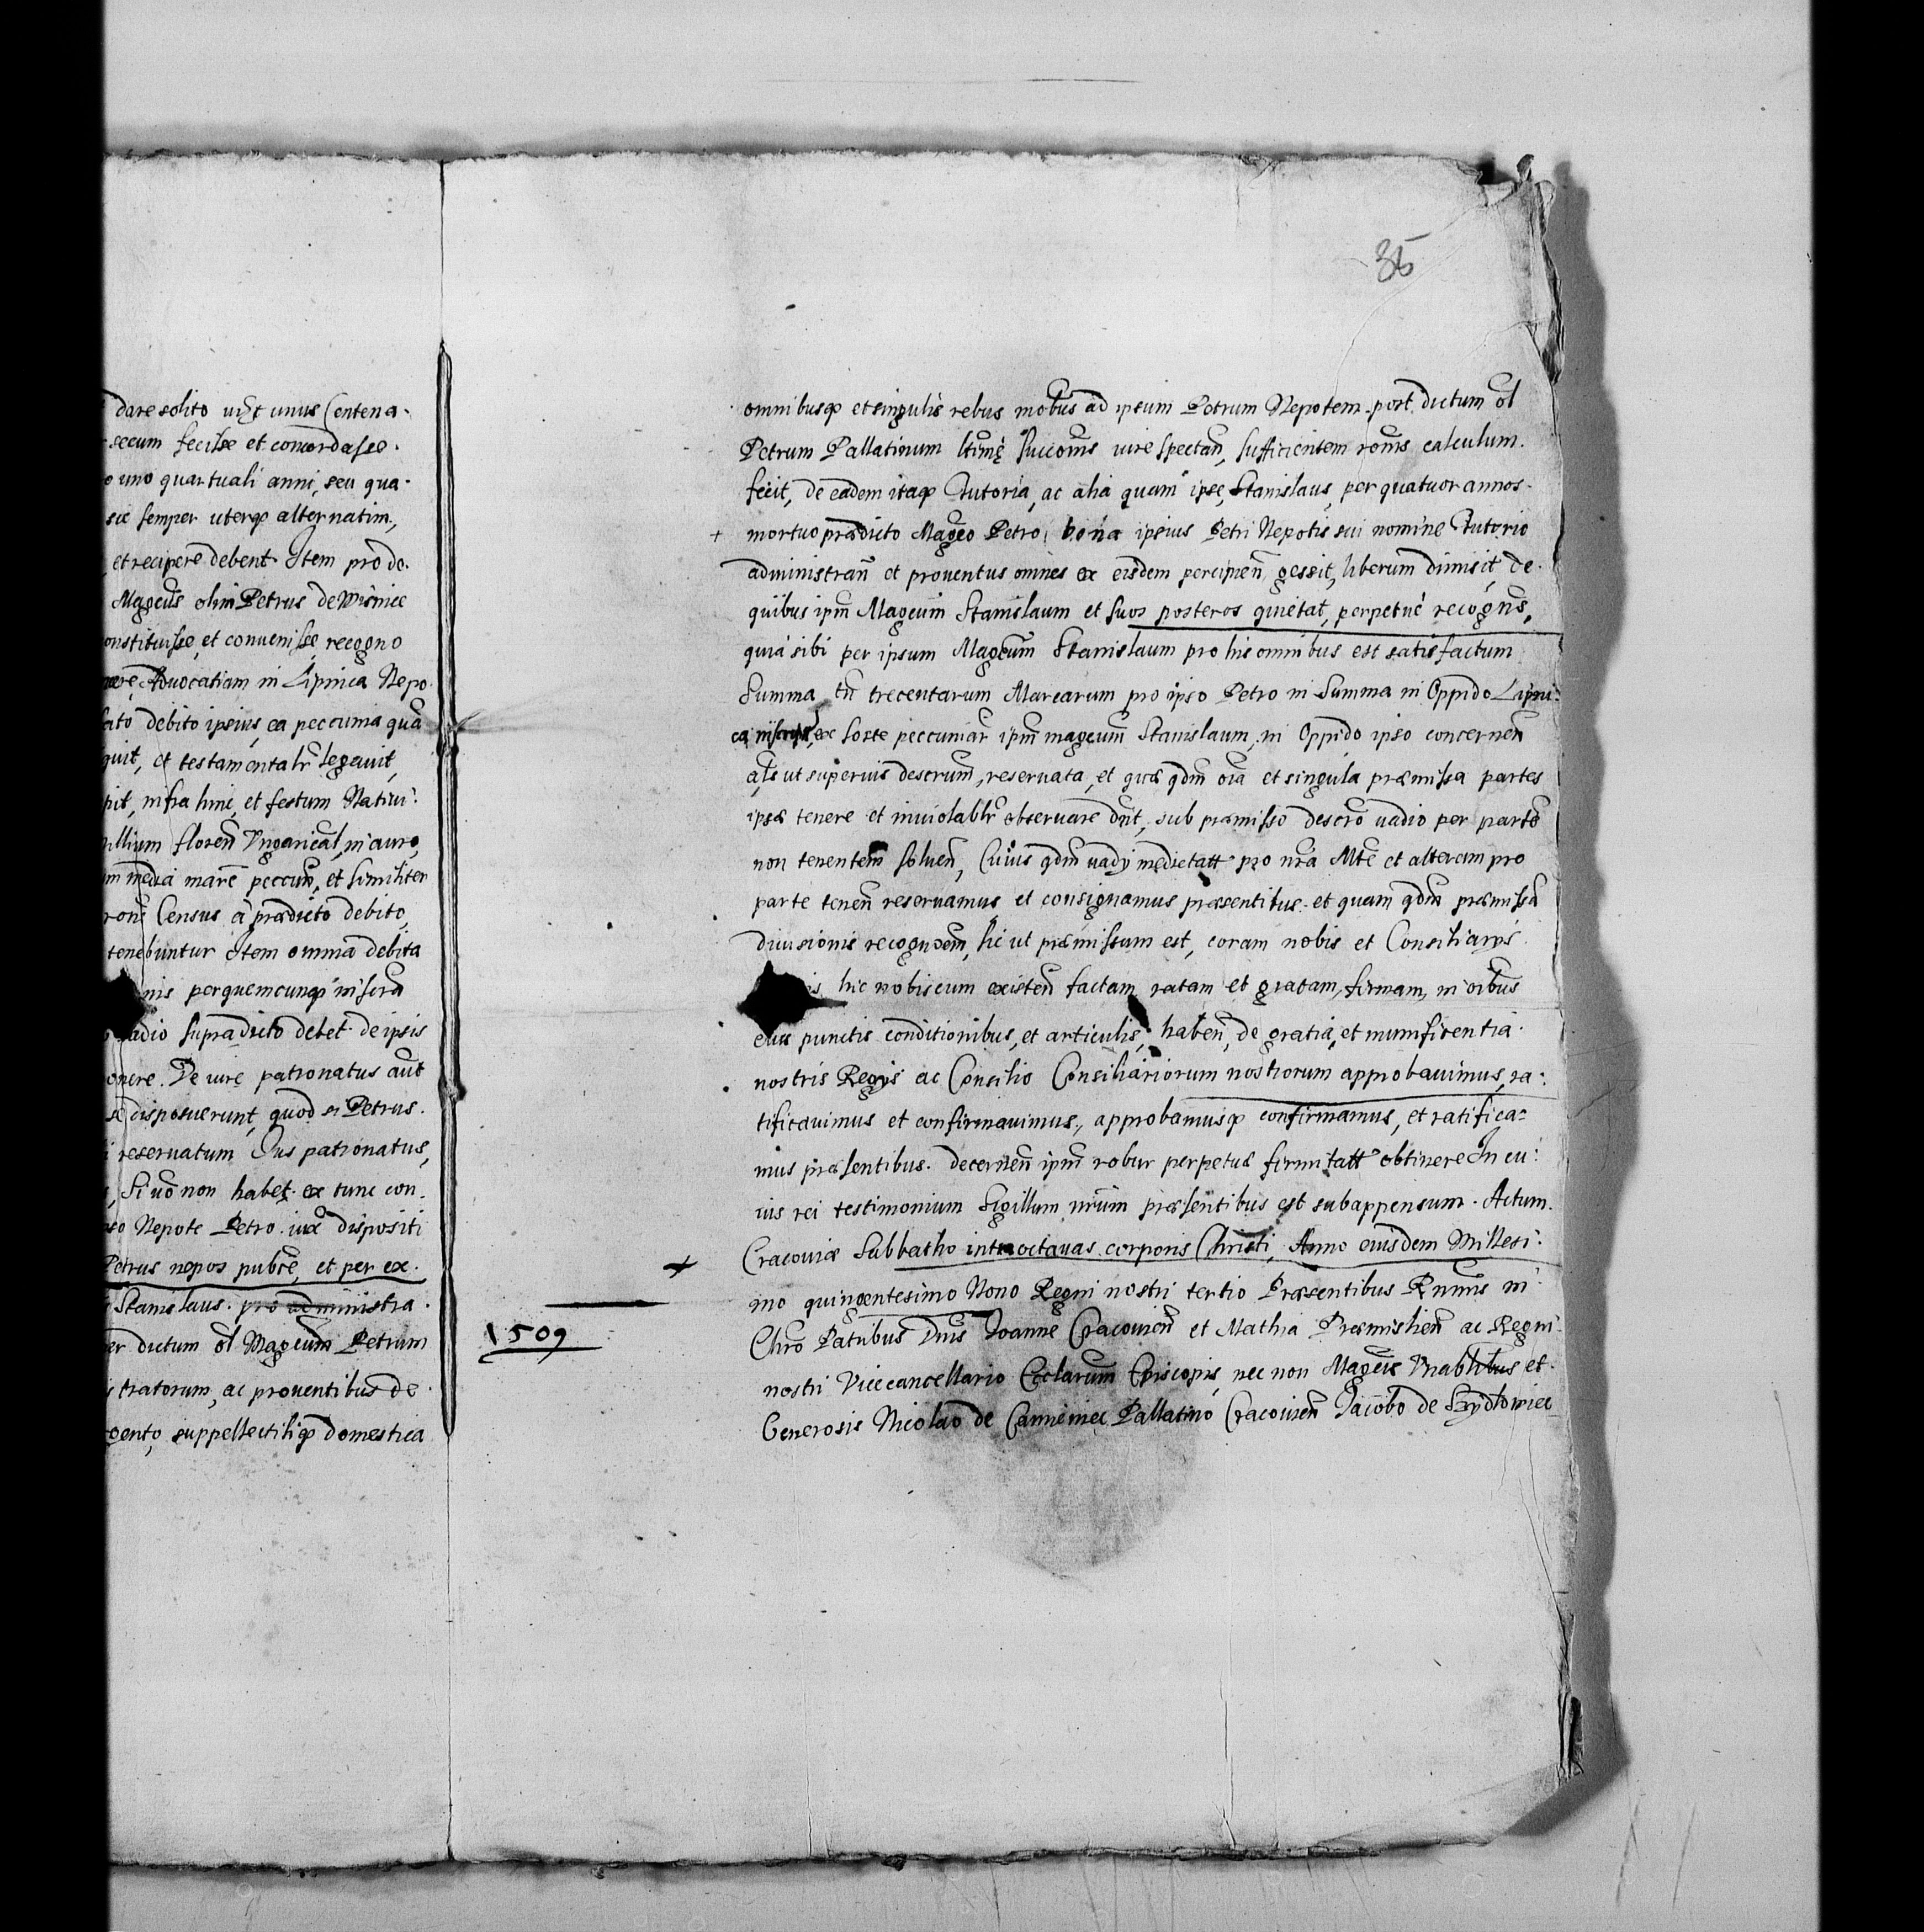 dare solito unus Centena-
secum fecisse et concordasse.
uno quartuali anni, seu qua-
sic semper uterq alternatim,
et recipere debent Item pro do-
Magcus olim Petrus de Wisnicz
onstituisse, et convenisse recogno
Advocatiam in Lipnica Nepo
debito ipsius, ea peccunia qua
quit, et testamentalr legavit,
pit, infra hinc, et festum Nativi:
illium floren Ungarical, in auro,
media marc peccun, et similiter
Census a prædicto debito,
tenebuntur Item omnia debita
nis perquemcunq inscra
vadio supradicto debet de ipsis
onere. De iure patronatus aut
disposuerunt, quod si Petrus.
reservatum Ius patronatus,
Si vo non habet ex tunc con.
Nepote Petro dispositi
Petrus nepos pubre, et per ex.
Stanislaus. pro administra.
er dictum ol Magcum Petrum
istratorum, ac proventibus de.
gento, suppellectiliq domestica
1509
35
omnibusq et singulis rebus mobus ad ipsum Petrum Nepotem post dictum ol
Petrum Pallatinum ltimę succoms iure spectan, sufficientem roms calculum.
fecit, de eadem itaq Tutoria, ac alia quam ipse Stanislaus, per quatuor annos.
+ mortuo prædicto Magco Petro, bona ipsius Petri Nepotis sui nomine Tutorio
administran et proventus omnes ex eisdem percipien gessit, liberum dimisit, de-
quibus ipm Magcum Stanislaum et suos posteros quietat, perpetue recogns,
quia sibi per ipsum Magcum Stanislaum pro his omnibus est satisfactum
Summa tn trecentarum Marcarum pro ipso Petro in Summa in Oppido Lipni-
ca ex sorte peccuniar ipm magcum Stanislaum, in Oppido ipso concernen
als ut superius descrum, reservata, et quæ qdm oia et singula præmissa partes
ipsæ tenere et inviolablr observare dnt, sub præmisso descro vadio per parte
non tenentem solven, Cuius qdm vadij medietatt pro nra Mte et alteram pro
parte tenen reservamus et consignamus præsentibus. et quam qdm præmissa
divisionis recognoem, sic ut præmissum est, coram nobis et Consiliarys
hic nobiscum existen factam, ratam et gratam, firmam, in oibus
eius punctis conditionibus, et articulis, haben, de gratia, et munificentia.
nostris Regijs ac Consilio Consiliariorum nostrorum approbavimus, ra-
tificavimus et confirmavimus, approbamusq confirmamus, et ratifica-
mus præsentibus. decernen ipm robur perpetuæ firmitatt obtinere In cu:
ius rei testimonium Sigillum nrum præsentibus est subappensum. Actum.
Cracoviæ Sabbatho intra octavas corporis Christi, Anno eiusdem Millesi:
mo quingentesimo Nono Regni nostri tertio Præsentibus Rnmis in
Chro Patribus Dnis Joanne Cracovien et Mathia Præmislien ac Regni
nostri Vicecancellario Ecclarum Episcopis, nec non Magcis Vnablibus et
Generosis Nicolao de Camieniec Pallatino Cracovien Jacobo de Szydlowiec